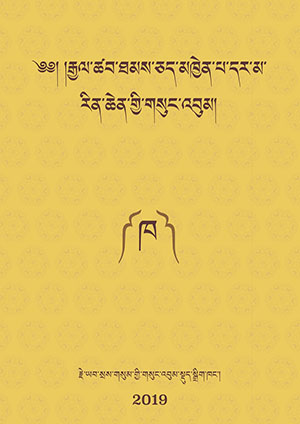 ༄༅། །རྒྱལ་ཚབ་ཐམས་ཅད་མཁྱེན་པ་དར་མ་
རིན་ཆེན་གྱི་གསུང་འབུམ།
༼ཁ༽
རྗེ་ཡབ་སྲས་གསུམ་གྱི་གསུང་འབུམ་སྡུད་སྒྲིག་ཁང་།
2019